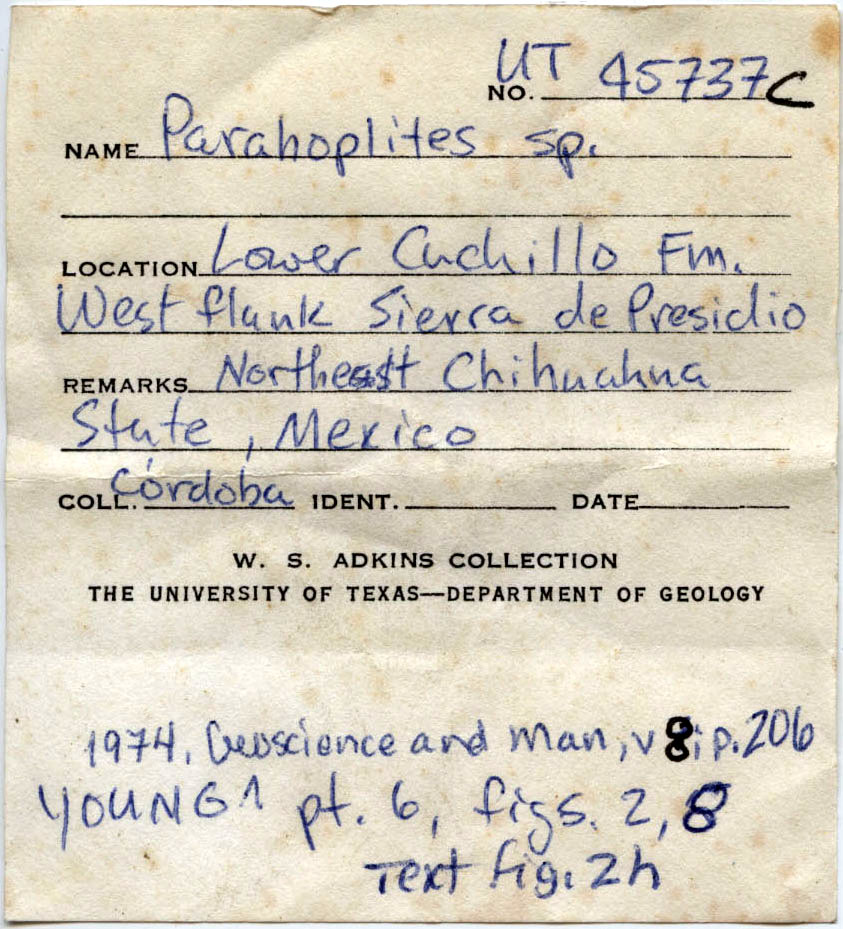 UT
NO. 45737C
NAME Parahoplites sp.
LOCATION Lower Cuchillo Fm.
West flank Sierra de Presidio
REMARKS Northeast Chihuahua
State, Mexico
COLL. Córdoba IDENT. DATE
W. S. ADKINS COLLECTION
THE UNIVERSITY OF TEXAS—DEPARTMENT OF GEOLOGY
1974, Geoscience and Man, v 8, p. 206
YOUNG ^ pt. 6, figs. 2, 8
Text fig. 2h